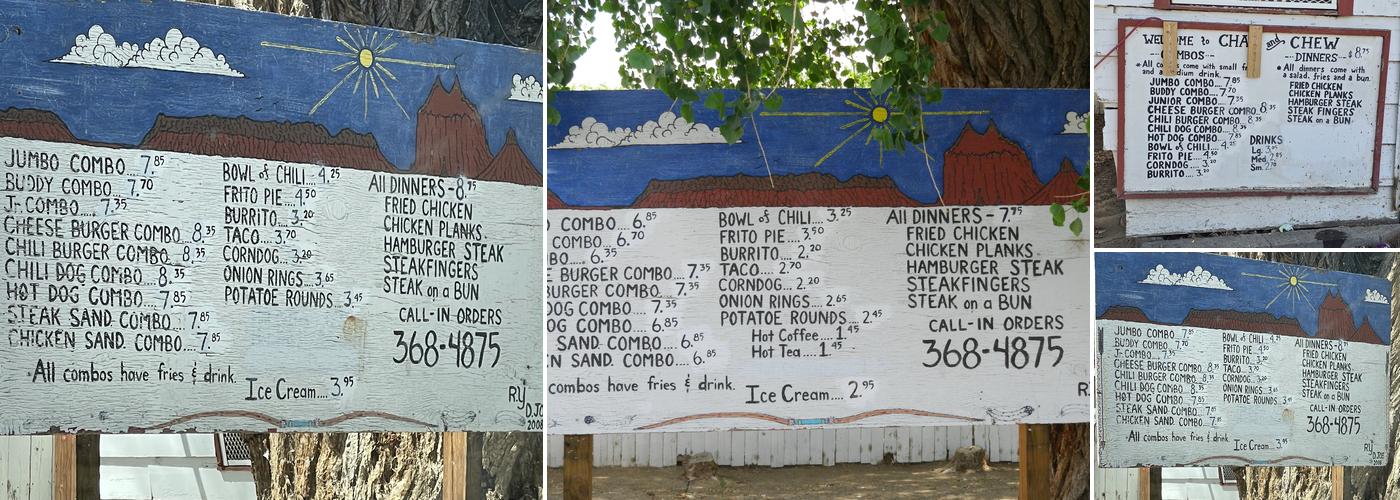 JUMBO COMBO 7.85
BUDDY COMBO... 7.70
Jr. COMBO.... 7.35
CHEESE BURGER COMBO...8.35
CHILI BURGER COMBO... 8.35
CHILI DOG COMBO... 8.35
HOT DOG COMBO... 7.85
STEAK SAND. COMBO....7.85
CHICKEN SAND. COMBO..7.85
All combos have fries & drink.
BOWL of CHILI....4.25
FRITO PIE....4.50
BURRITO....3.20
TACO....3.70
CORNDOG...3.20
ONION RINGS...3.65
POTATOE ROUNDS...3.45
Ice Cream.... 3.95
All DINNERS-8.75
FRIED CHICKEN
CHICKEN PLANKS
HAMBURGER STEAK
STEAKFINGERS
STEAK on a BUN
CALL-IN ORDERS
368-4875
RY
D.JO
2008
COMBO... 6.85
COMBO... 6.70
BO.... 6.35
E BURGER COMBO.... 7.35
BURGER COMBO.... 7.35
OG COMBO.... 7.35
OG COMBO.... 6.85
SAND. COMBO.... 6.85
N SAND. COMBO... 6.85
combos have fries & drink.
BOWL of CHILI.... 3.25
FRITO PIE.... 3.50
BURRITO.... 2.20
TACO.... 2.70
CORNDOG... 2.20
ONION RINGS.... 2.65
POTATOE ROUNDS.... 2.45
Hot Coffee.... 1.45
Hot Tea.... 1.45
Ice Cream.... 2.95
All DINNERS - 7.75
FRIED CHICKEN
CHICKEN PLANKS
HAMBURGER STEAK
STEAKFINGERS
STEAK on a BUN
CALL-IN ORDERS
368-4875
RJ
WELCOME to CHA and CHEW
COMBOS
All come with small f
and a dium drink.
JUMBO COMBO... 7.85
BUDDY COMBO... 7.70
JUNIOR COMBO... 7.35
CHEESE BURGER COMBO. 8.35
CHILI BURGER COMBO... 8.35
CHILI DOG COMBO... 8.35
HOT DOG COMBO... 7.85
BOWL of CHILI... 4.25
FRITO PIE... 4.50
CORNDOG... 3.20
BURRITO... 3.20
DINNERS - $8.75
All dinners come with
a salad, fries and a bun.
FRIED CHICKEN
CHICKEN PLANKS
HAMBURGER STEAK
STEAK FINGERS
STEAK on a BUN
DRINKS
Lg.
Med.
Sm.
JUMBO COMBO 7.85
BUDDY COMBO... 7.70
Jr. COMBO.... 7.35
CHEESE BURGER COMBO...8.35
CHILI BURGER COMBO... 8.35
CHILI DOG COMBO... 8.35
HOT DOG COMBO... 7.85
STEAK SAND. COMBO....7.85
CHICKEN SAND. COMBO..7.85
All combos have fries & drink.
BOWL of CHILI....4.25
FRITO PIE....4.50
BURRITO....3.20
TACO....3.70
CORNDOG...3.20
ONION RINGS...3.65
POTATOE ROUNDS...3.45
Ice Cream.... 3.95
All DINNERS-8.75
FRIED CHICKEN
CHICKEN PLANKS
HAMBURGER STEAK
STEAKFINGERS
STEAK on a BUN
CALL-IN ORDERS
368-4875
RY
D.JO
2008